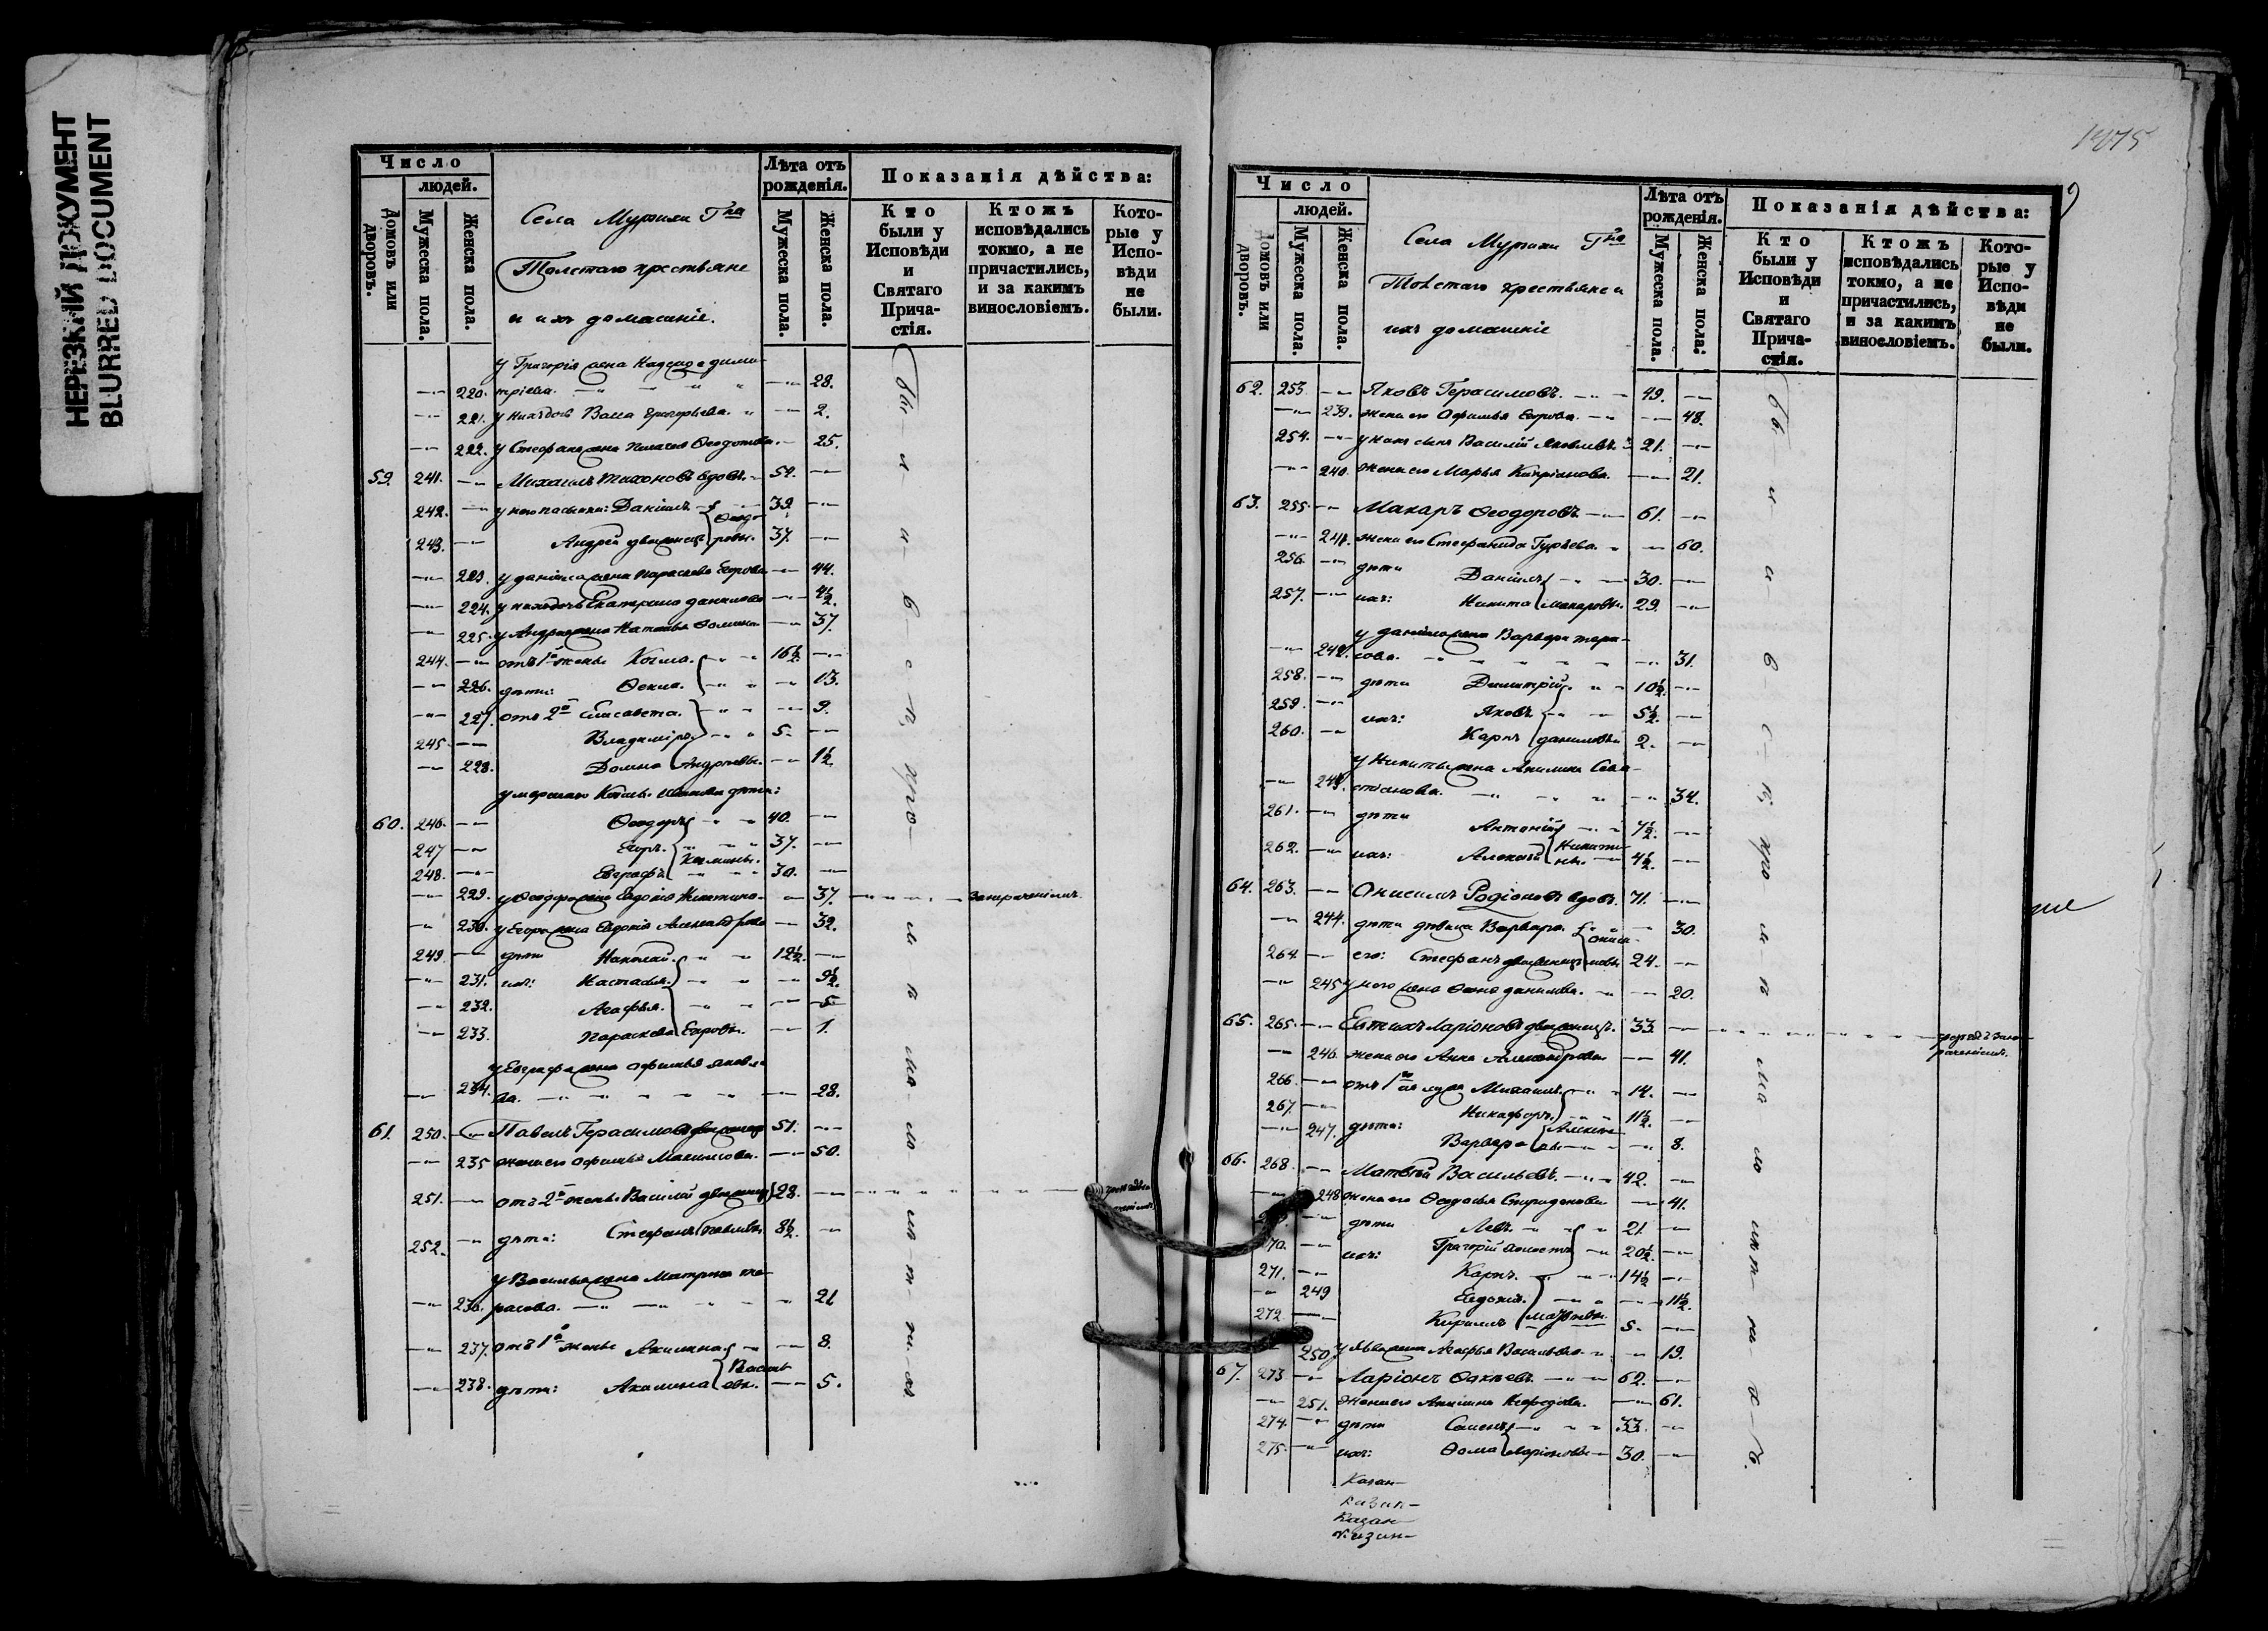 НЕРЕЗКИЙ ДОКУМЕНТ
BLURRED DOCUMENT
Число
людей.
Домовъ или дворовъ.
Мужеска пола.
Женска пола.
Села Мурыли Гна
Толстаго крестьяне
и ихъ домашніе.
Лѣта отъ рожденія.
Мужеска пола.
Женска пола.
Показанія дѣйства:
Кто были у Исповѣди и Святаго Причастія.
Ктожъ исповѣдались токмо, а не причастились, и за какимъ винословіемъ.
Которые у Исповѣди не были.
у Григорія жена Надежда дими-
220. тріева. 28.
221. у нихъ дочь Васса Григорьева. 2.
222. у Стефана жена Пелагея Ѳеодотова. 25.
59. 241. Михаилъ Тихоновъ вдовъ. 52.
242. у него пасынки: Даніилъ 39.
Ѳеодо-
243. Андрей двоженецъ ровы. 37.
223. у Даніила жена Параскева Егорова 44.
224. у нихъ дочь Екатерина данилова 4½.
225. у Андрея жена Наталья Ѳомина 37.
244. отъ 1й жены Косма. 16½.
226. дѣти: Ѳекла. 13.
227. отъ 2й Елисавета. 9.
245. Владиміръ 5.
228. Домна Андреевы. 1½.
умершаго Космы дѣти:
60. 246. Ѳеодоръ 40.
247 Егоръ. 37.
248. Евграфъ Космины. 30.
229. у Ѳеодора жена Евдокія Никитина 37. за нераченіемъ.
230. у Егора жена Евдокія Александрова 32.
249. дѣти Николай. 12½.
231. ихъ: Настасья. 9½.
232. Агафья. 5
233. Параскева Егоровы. 1.
у Евграфа жена Офимья яковле-
234. ва. 28.
61. 250. Павелъ Герасимовъ двоженецъ 51.
235 жена его Офимья Максимова. 50.
251. отъ 2й жены Василій двоженецъ 28.
252. дѣти: Стефанъ Павловы 8½.
у Василья жена Матрена та-
236. расова. 21
237. отъ 1й жены Акилина 8.
Василь-
238. дѣти: Акилина евы. 5.
1475
Число
людей.
Домовъ или дворовъ.
Мужеска пола.
Женска пола.
Села Мурыли Гна
Толстаго крестьяне и
ихъ домашніе
Лѣта отъ рожденія.
Мужеска пола.
Женска пола:
Показанія дѣйства:
Кто были у Исповѣди и Святаго Причастія.
Ктожъ исповѣдались токмо, а не причастились, и за какимъ винословіемъ.
Которые у Исповѣди не были.
62. 253. Яковъ Герасимовъ. 49.
239. жена его Офимья Егорова. 48.
254. у нихъ сынъ Василій Яковлевъ 21.
240. жена его Марья Кипріянова. 21.
63. 255. Макаръ Ѳеодоровъ 61.
241. жена его Стефанида Гурьева. 60.
256. дѣти Даніилъ 30.
257. ихъ: Никита макаровы. 29.
у данила жена Варвара тара-
242. сова. 31.
258. дѣти Димитрій 10½.
259. ихъ: Яковъ 5½.
260. Карпъ даниловы 2.
у Никиты жена Акилина Сева-
243. стіанова. 34.
261. дѣти Антоній 7½.
262. ихъ: Алексій Никитины. 4½.
64. 263. Онисимъ Родіоновъ вдовъ. 71.
244. дѣти дѣвица Варвара 30.
264 его: Стефанъ двоженецъ онисимовы 24.
245 у него жена Ѳекла данилова. 20.
65. 265. Евтихъ Ларіоновъ двоженецъ. 33.
246. жена его Анна Александрова 41.
266. отъ 1го ея мужа Михаилъ 14.
267. Никифоръ 11½.
247. дѣти: Варвара 8.
66. 268. Матвѣй Васильевъ. 42.
248 жена его Ѳедосья Спиридонова 41.
дѣти Левъ. 21.
270. ихъ: Григорій холостъ 20½.
271. Карпъ. 14½
249 Евдокія. 11½.
272 Кирилъ матвѣевы. 5.
250 у Льва жена Агафья Васильева 19.
67. 273 Ларіонъ Ѳакѣевъ. 62.
251. жена его Акилина Нефедова. 61.
274. дѣти Семенъ 33.
275. ихъ: Ѳома Ларіоновы 30.
Казан-
Казан-
Казан-
Казан-